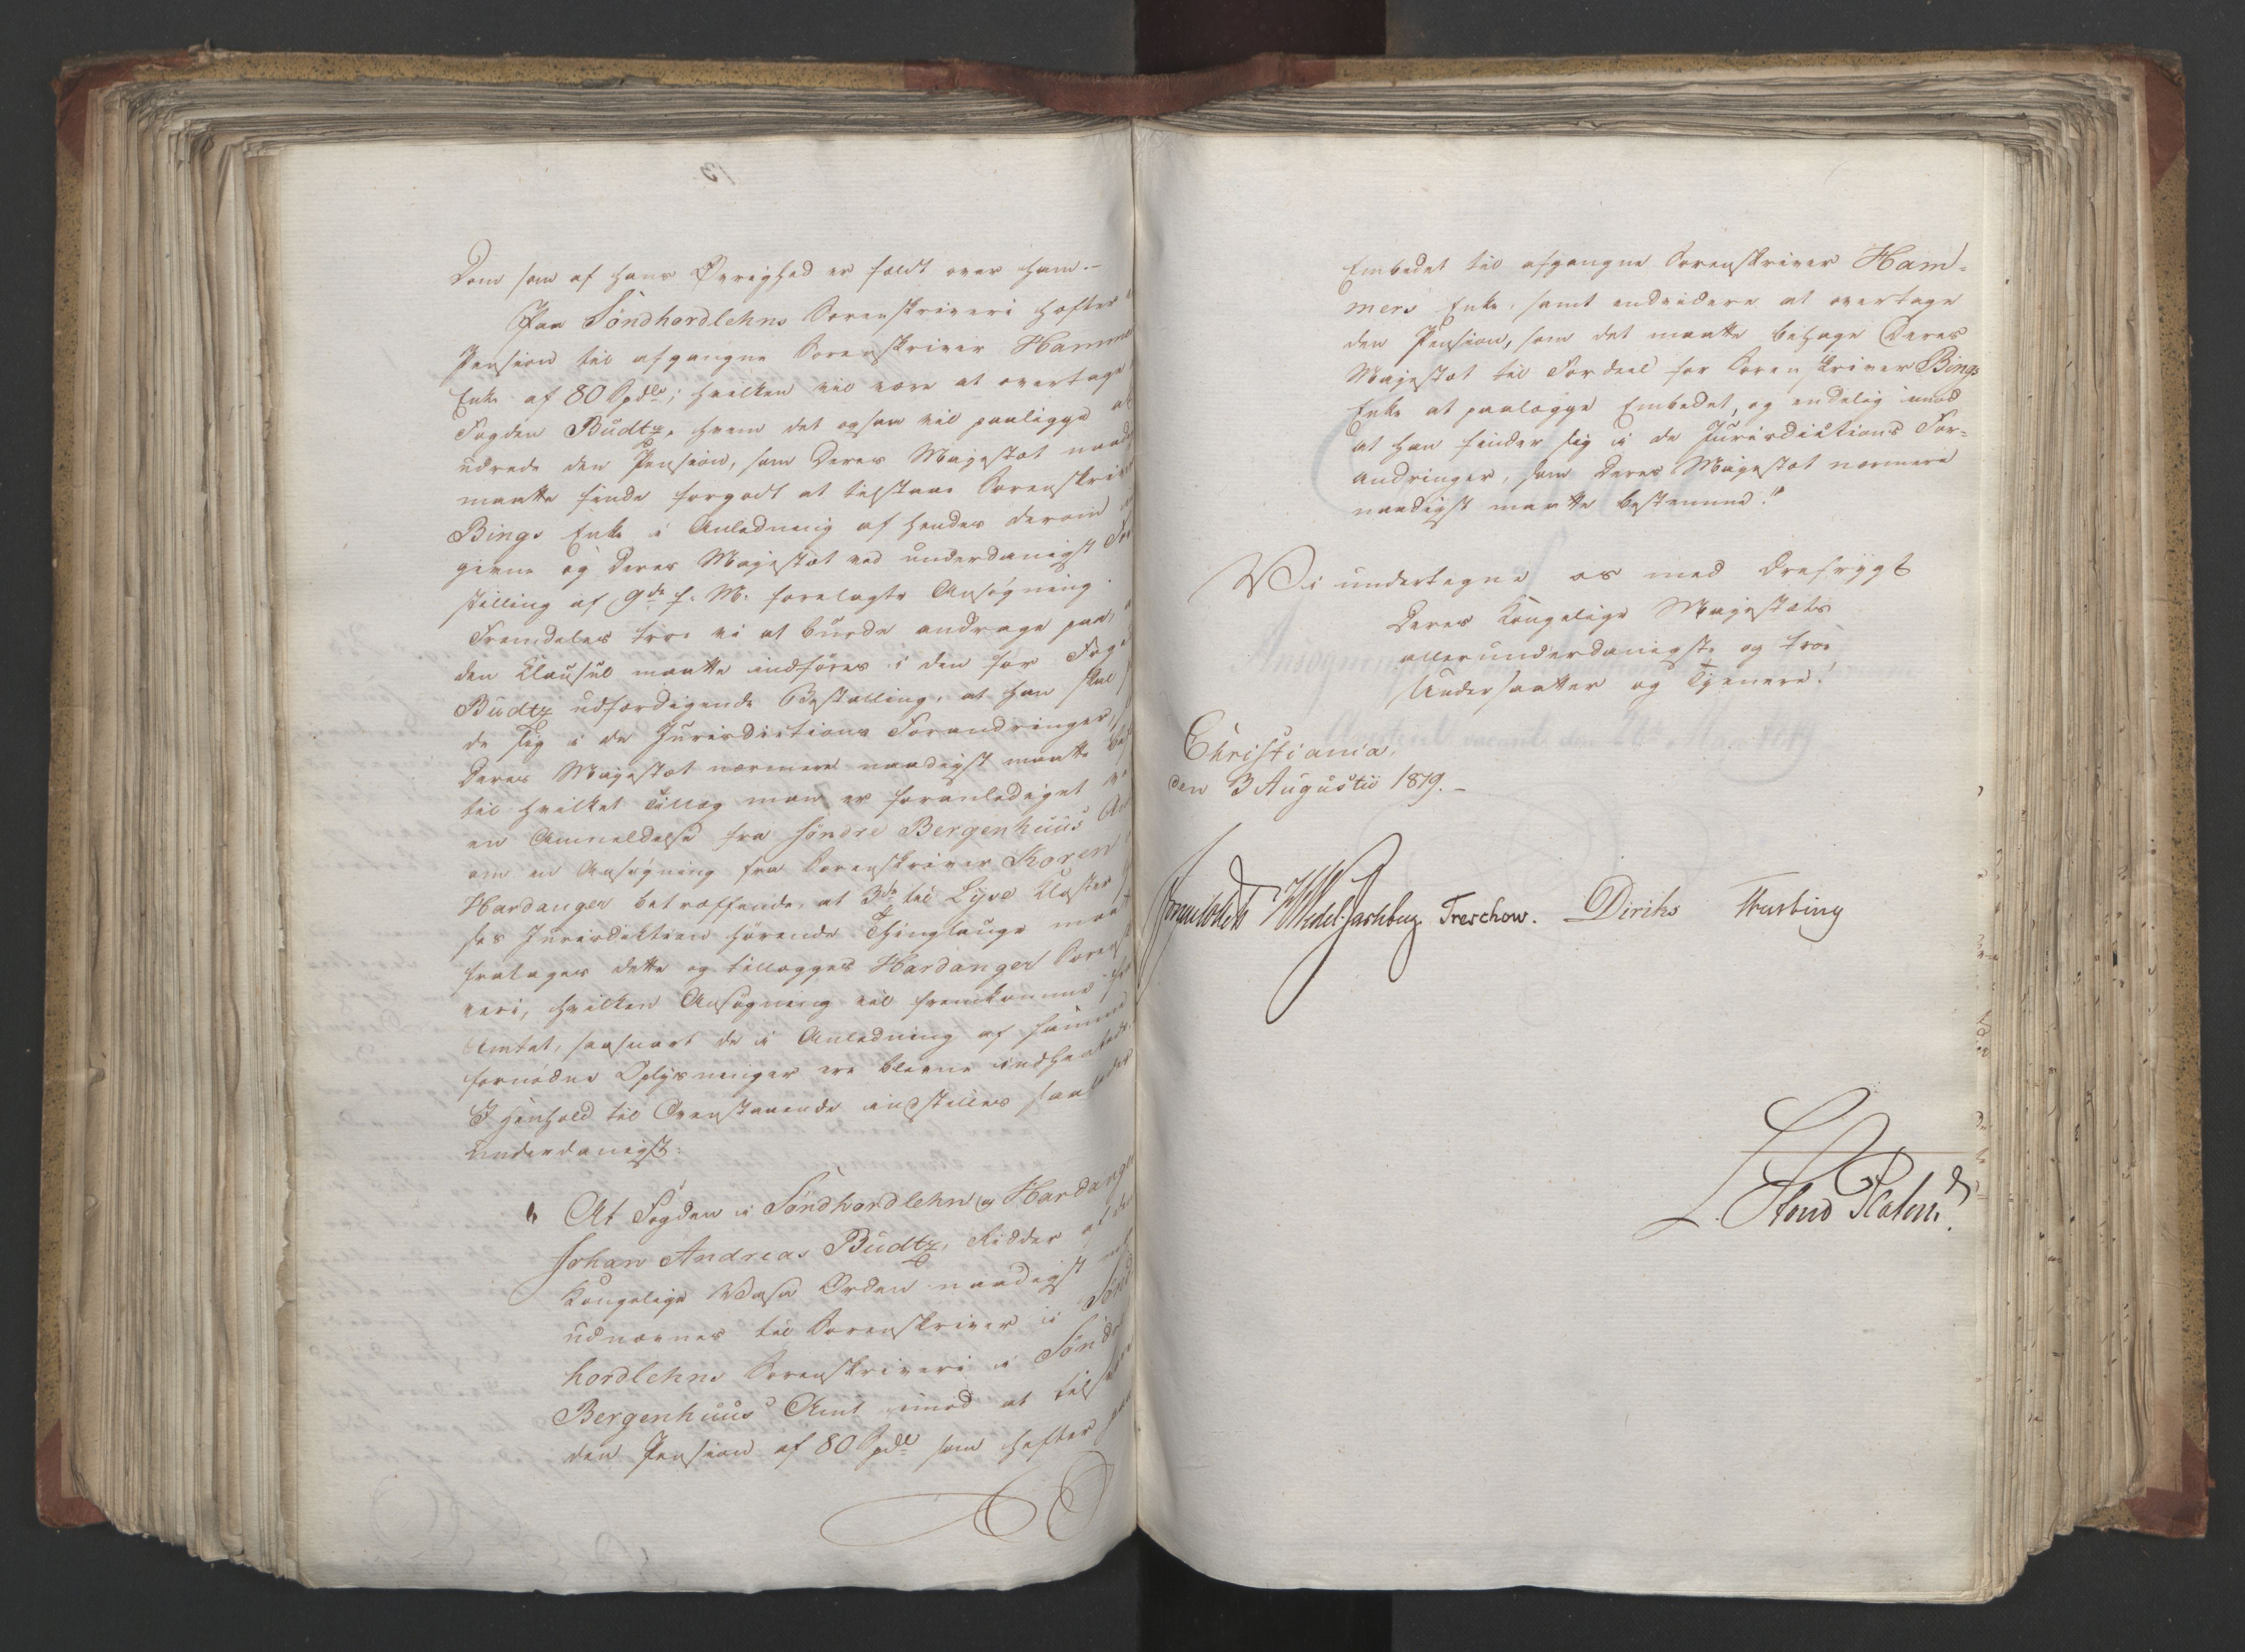 Dom som af hans Øvrighed er fældt over ham.-
Paa Söndhordlehns Sorenskriveri hefter
Pension til afgangne Sorenskriver Hammers
Enke af 80 Spdlr; hvilken vil være at overtage
Fogden Budtz, hvem det ogsaa vil paaligge at
udrede den Pension, som Deres Majestæt naadigst
maatte finde forgodt at tilstaae Sorenskriver
Bings Enke i Anledning af hendes derom
givne og Deres Majestæt ved underdanigst
stilling af 9de f. M. forelagte Ansøgning.
Fremdeles troe vi at burde andrage paa,
den Klausul maatte indføres i den for
Budtz udfærdigende Bestalling, at han skal
de sig i de Jurisdictions Forandringer,
Deres Majestæt nærmere naadigst maatte
til hvilket Tillæg man er foranlediget ved
en Anmeldelse fra Söndre Bergenhuus
om en Ansøgning fra Sorenskriver Koren
Hardanger betræffende, at 3de til Lyse Kloster
ses Jurisdiktion hørende Thinglauge maatte
fratages dette og tillægges Hardanger
veri, hvilken Ansøgning vil fremkomme fra
Amtet, saasnart de i Anledning af samme
fornødne Oplysninger ere blevne indhentede.
I Henhold til Ovenstaaende indstilles saaledes
underdanigst:
" At Fogden i Söndhordlehn og Hardanger
Johan Andreas Budtz, Ridder af den
Kongelige Wasa Orden naadigst
udnævnes til Sorenskriver i Sönd
hordlehns Sorenskriveri i Söndre
Bergenhuus Amt imod at
den Pension af 80 Spdl som hefter paa
Embedet til afgangne Sorenskriver Ham-
mers Enke, samt endvidere at overtage
den Pension, som det maatte behage Deres
Majestæt til Fordeel for Sorenskriver Bings
Enke at paalægge Embedet, og endelig imod
at han finder sig i de Jurisdictions For-
andringer, som Deres Majestæt nærmere
naadigst maatte bestemme."
Vi undertegne os med Ærefrygt
Deres Kongelige Majestæts
allerunderdanigste og troe
Undersaatter og Tjenere!
Christiania,
den 3 Augusti 1819.-
Wedel Jarlsberg Treschow. Diriks